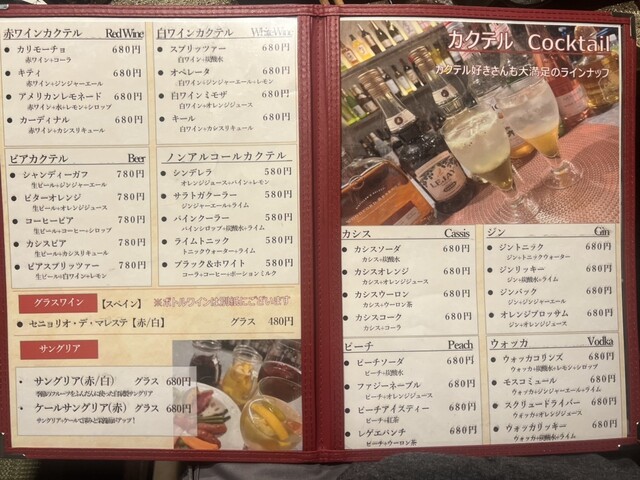 赤ワインカクテル Red Wine
カリモーチョ 680円
赤ワイン+コーラ
キティ 680円
赤ワイン+ジンジャーエール
アメリカンレモネード 680円
赤ワイン+水+レモン+シロップ
カーディナル 680円
赤ワイン+カシスリキュール
白ワインカクテル White Wine
スプリッツァー 680円
白ワイン+炭酸水
オペレータ 680円
白ワイン+ジンジャーエール+レモン
白ワインミモザ 680円
白ワイン+オレンジジュース
キール 680円
白ワイン+カシスリキュール
ビアカクテル Beer
シャンディーガフ 780円
生ビール+ジンジャーエール
ビターオレンジ 780円
生ビール+オレンジジュース
コーヒービア 780円
生ビール+コーヒー+シロップ
カシスビア 780円
生ビール+カシスリキュール
ビアスプリッツァー 780円
生ビール+白ワイン+レモン
ノンアルコールカクテル
シンデレラ 580円
オレンジジュース+パイン+レモン
サラトガクーラー 580円
ジンジャーエール+ライム
パインクーラー 580円
パインシロップ+炭酸水+ライム
ライムトニック 580円
トニックウォーター+ライム
ブラック&ホワイト 580円
コーラ+コーヒー+ポーションミルク
グラスワイン 【スペイン】 ※ボトルワインは別紙にございます
セニョリオ・デ・マレステ【赤/白】 グラス 480円
サングリア
サングリア(赤/白) グラス 680円
季節のフルーツをふんだんに使った自家製サングリア
ケールサングリア(赤) グラス 680円
サングリア+ケールで深みと栄養面UPアップ!
カクテル Cocktail
カクテル好きさんも大満足のラインナップ
カシス Cassis
カシスソーダ 680円
カシス+炭酸水
カシスオレンジ 680円
カシス+オレンジジュース
カシスウーロン 680円
カシス+ウーロン茶
カシスコーク 680円
カシス+コーラ
ジン Gin
ジントニック 680円
ジン+トニックウォーター
ジンリッキー 680円
ジン+炭酸水+ライム
ジンバック 680円
ジン+ジンジャーエール
オレンジブロッサム 680円
ジン+オレンジジュース
ピーチ Peach
ピーチソーダ 680円
ピーチ+炭酸水
ファジーネーブル 680円
ピーチ+オレンジジュース
ピーチアイスティー 680円
ピーチ+紅茶
レゲエパンチ 680円
ピーチ+ウーロン茶
ウォッカ Vodka
ウォッカコリンズ 680円
ウォッカ+炭酸水+レモン+シロップ
モスコミュール 680円
ウォッカ+ジンジャーエール+ライム
スクリュードライバー 680円
ウォッカ+オレンジジュース
ウォッカリッキー 680円
ウォッカ+炭酸水+ライム